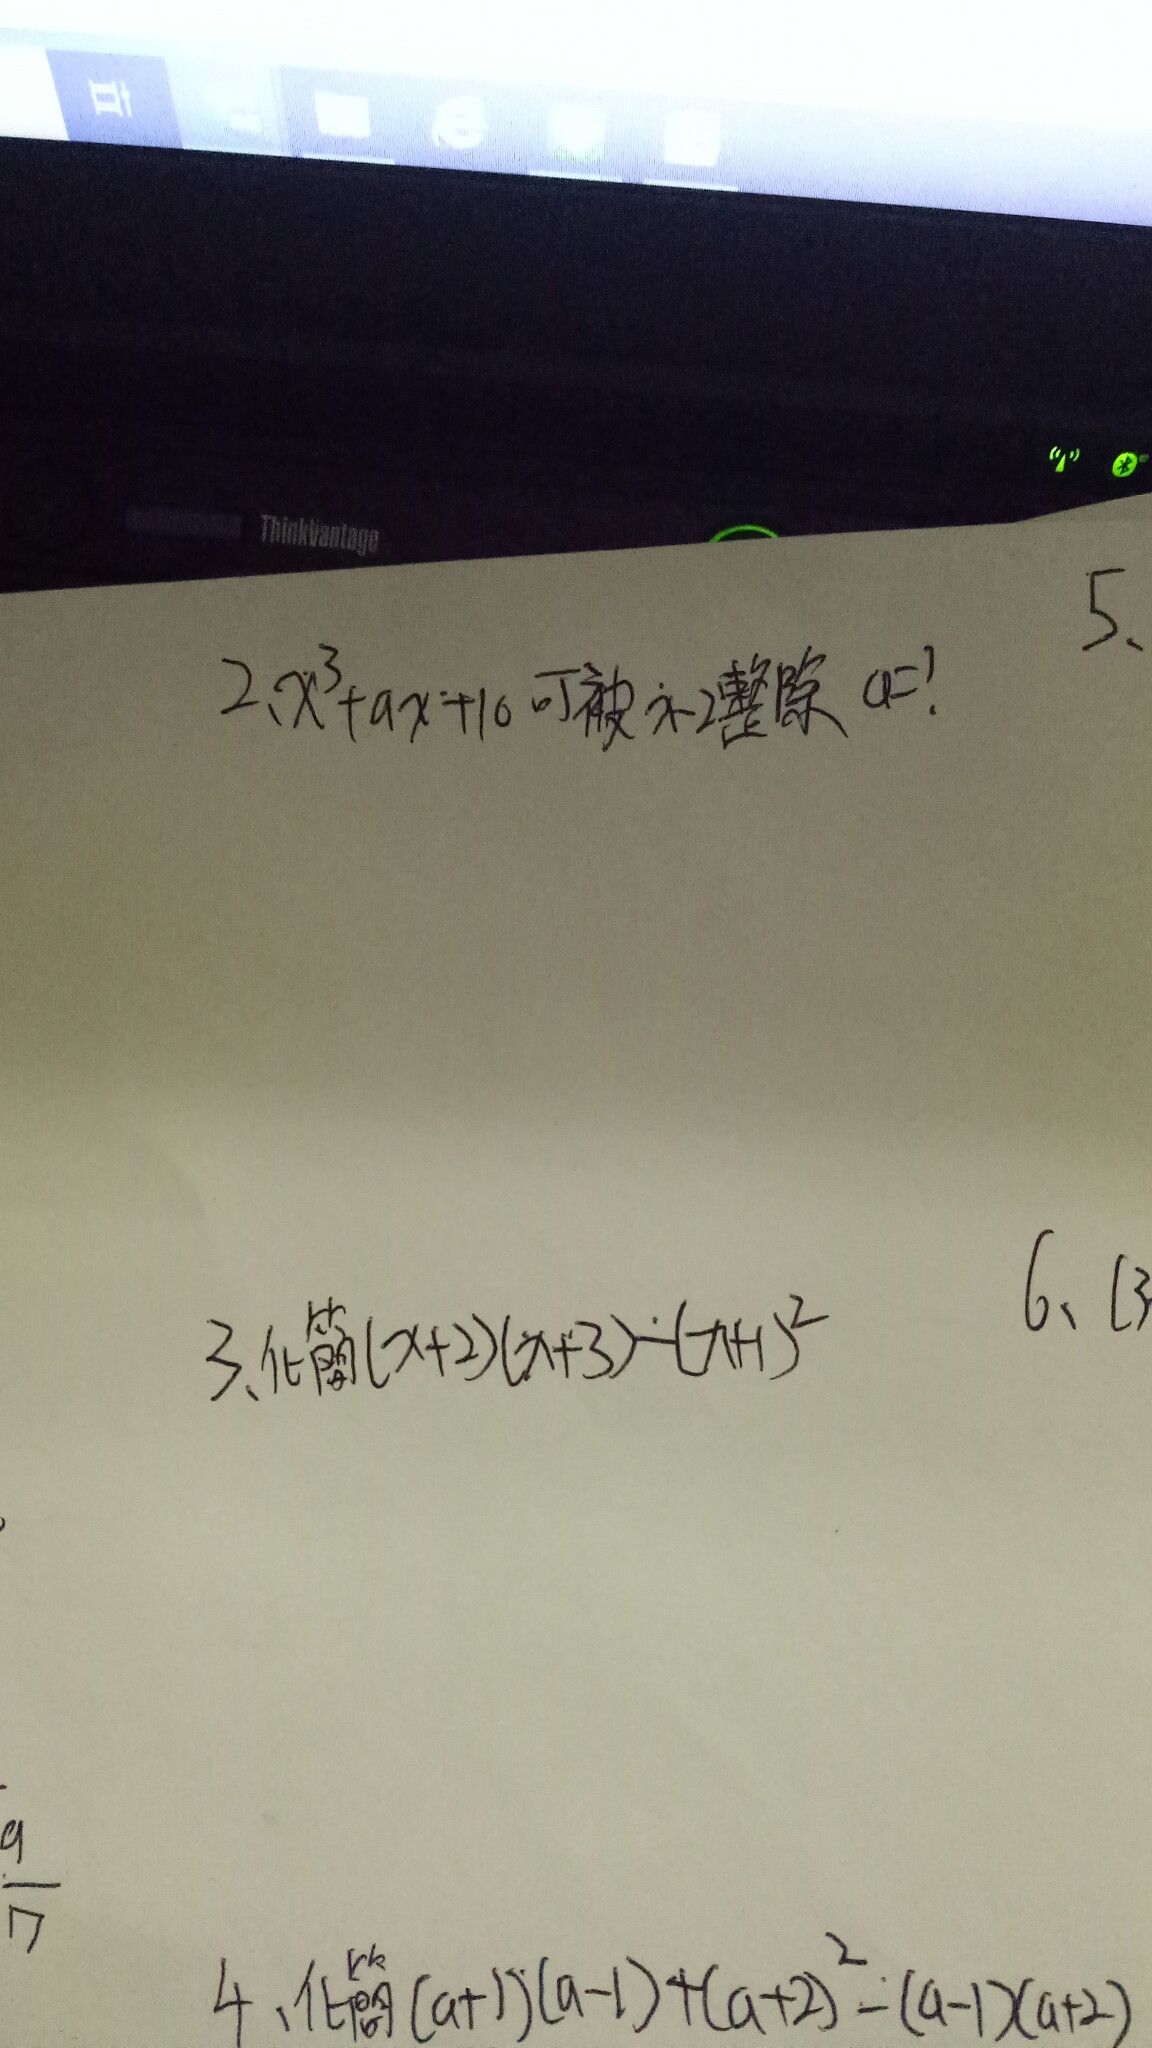 ThinkVantage
5、
2、x³+ax+10可被x-2整除 a=?
6、(3
3、化簡(x+2)(x+3)-(x+1)²
4、化簡(a+1)(a-1)+(a+2)²-(a-1)(a+2)